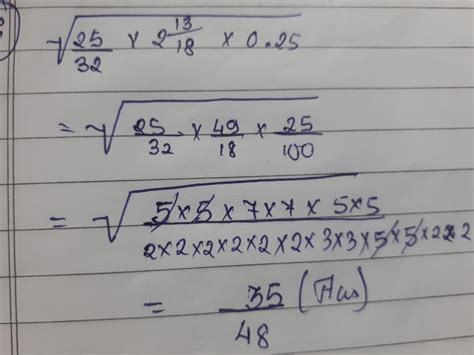 √(25/32 × 2 13/18 × 0.25)
= √(25/32 × 49/18 × 25/100)
= √(5×5×7×7×5×5 / 2×2×2×2×2×2×3×3×5×5×2×2)
= 35/48 (Ans)